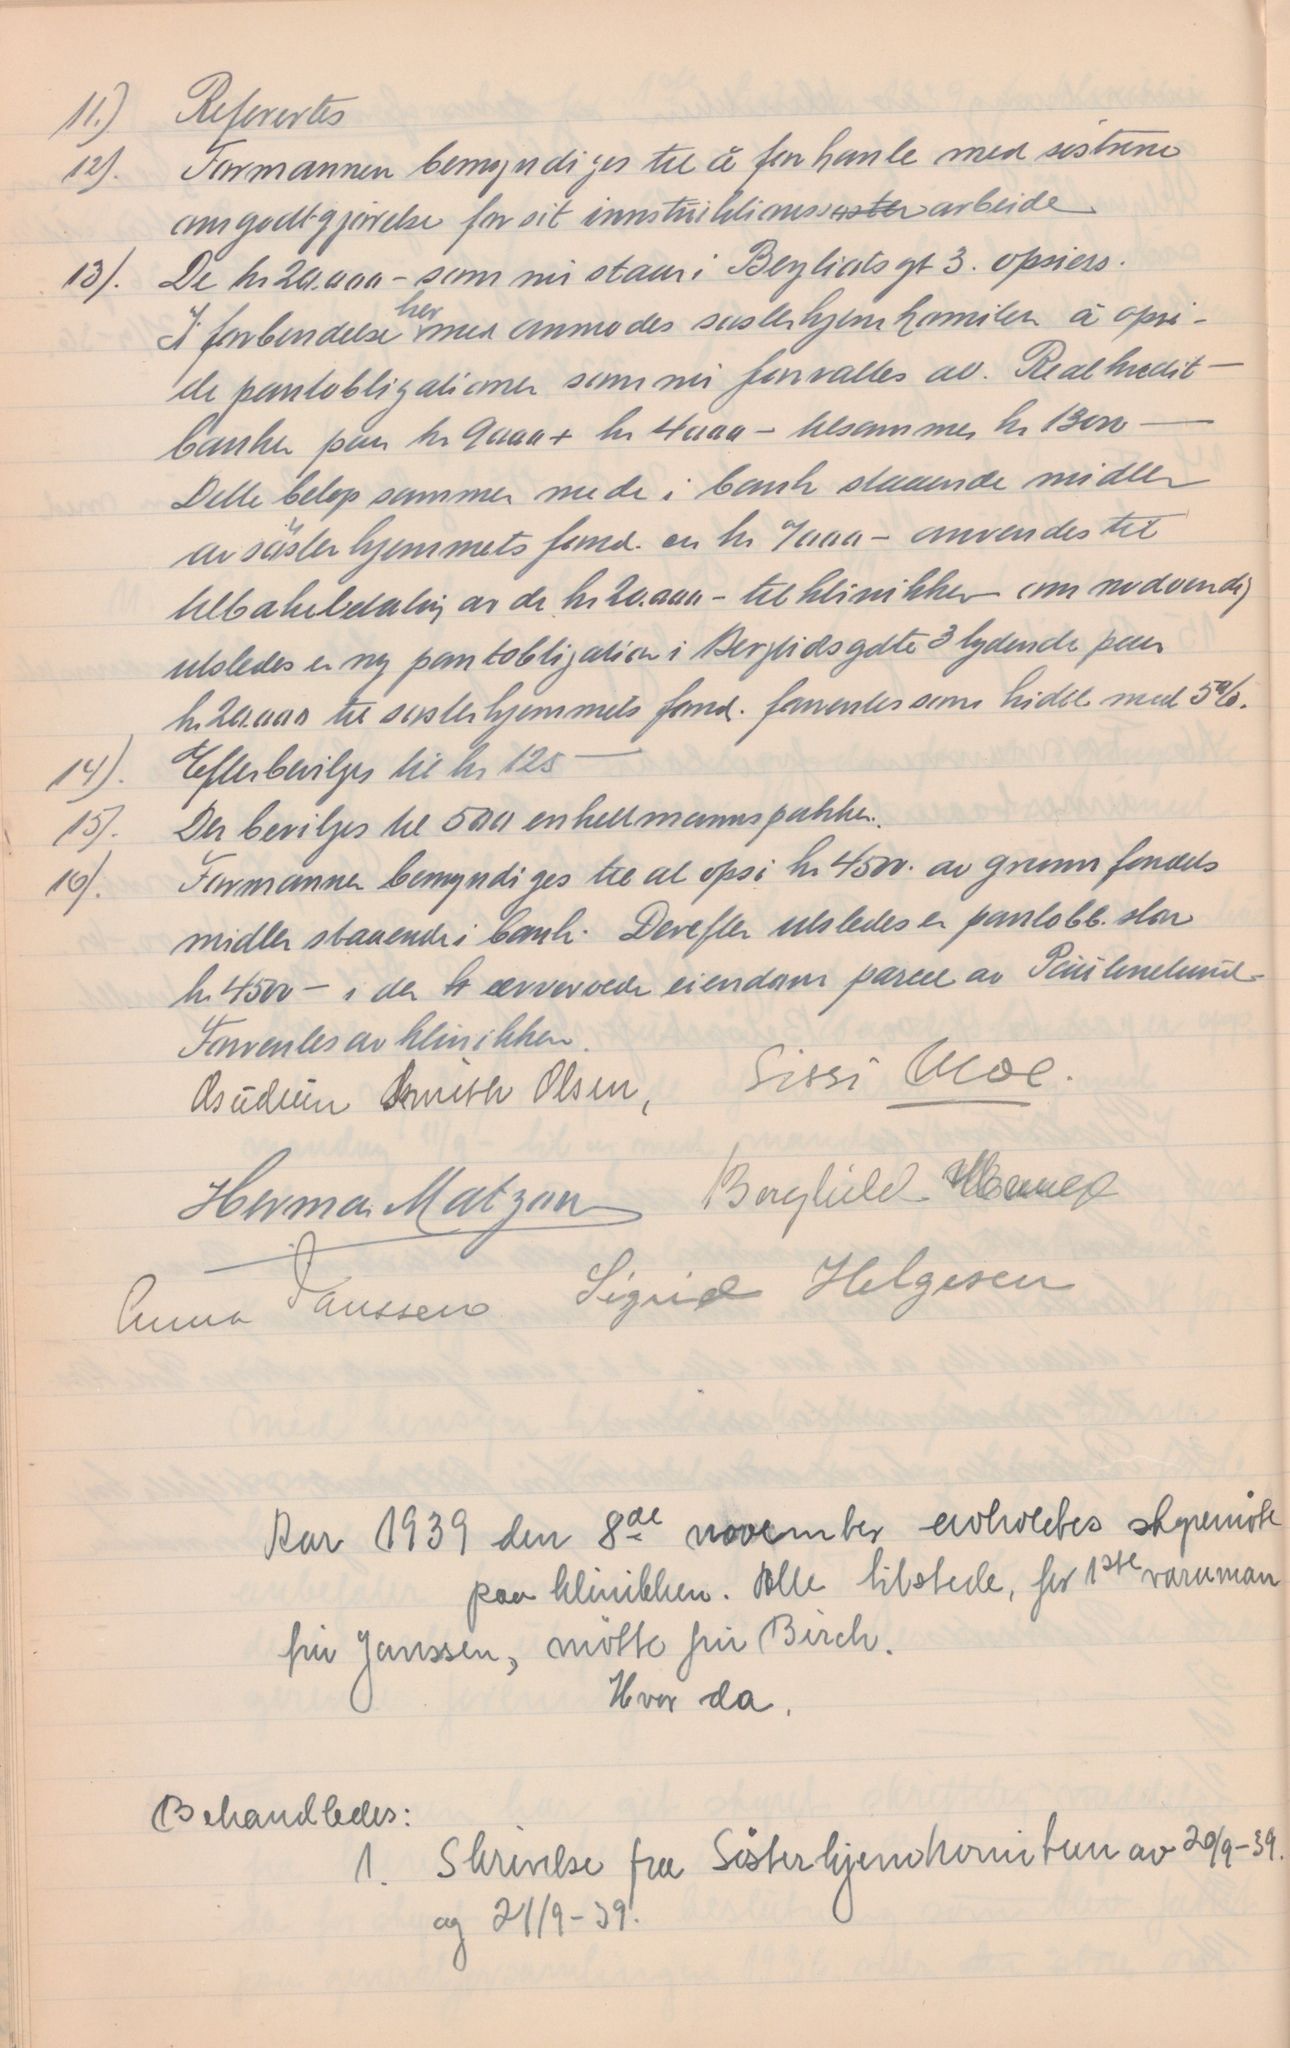 11.) Referertes
12). Formannen bemyndiges til å forhanle med søstrene
om godtgjørelse for sit innstruktionssøster arbeide
13). De kr 20.000 – som nu staar i Bergliots gt 3. opsiers.
I forbendelse her med anmodes søsterhjemkomiteen å opsi-
de pantobligationer som nu forvaltes av Realkredit-
banken paa kr 9000 + kr 4000 – tilsammen kr 13000 —
Dette beløp sammen med de i bank staaende midler
av søsterhjemmets fond. en kr 7000 – anvendes til
tilbakebetaling av de kr 20.000 – til klinikken om nødvendig
utstedes en ny pantobligation i Bergliotsgdte 3 lydende paa
kr. 20.000 til søsterhjemmets fond. forrentes som hidtil med 5%.
14). Efterbevilges til kr 125 —
15). Der bevilges til 500 enkeltmannspakker.
16). Formannen bemyndiges til at opsi kr 4500. av grunnfondets
midler staaende i bank. Derefter utstedes en pantobl. stor
kr 4500 – i den erververvede eiendom parcel av Paulinelund-
Forrentes av klinikken.
Gudrun Smith Olsen, Sissi Moe.
Herman Matzon Borghild
Anna Janssen Sigrid Helgesen
Aar 1939 den 8de november avholdtes styremøte
paa klinikken. Alle tilstede, for 1ste varaman
fru Janssen, møtte fru Birch.
Hvor da.
Behandledes:
1. Skrivelse fra Søsterhjemkomiteen av 20/9–39.
og 21/9–39.